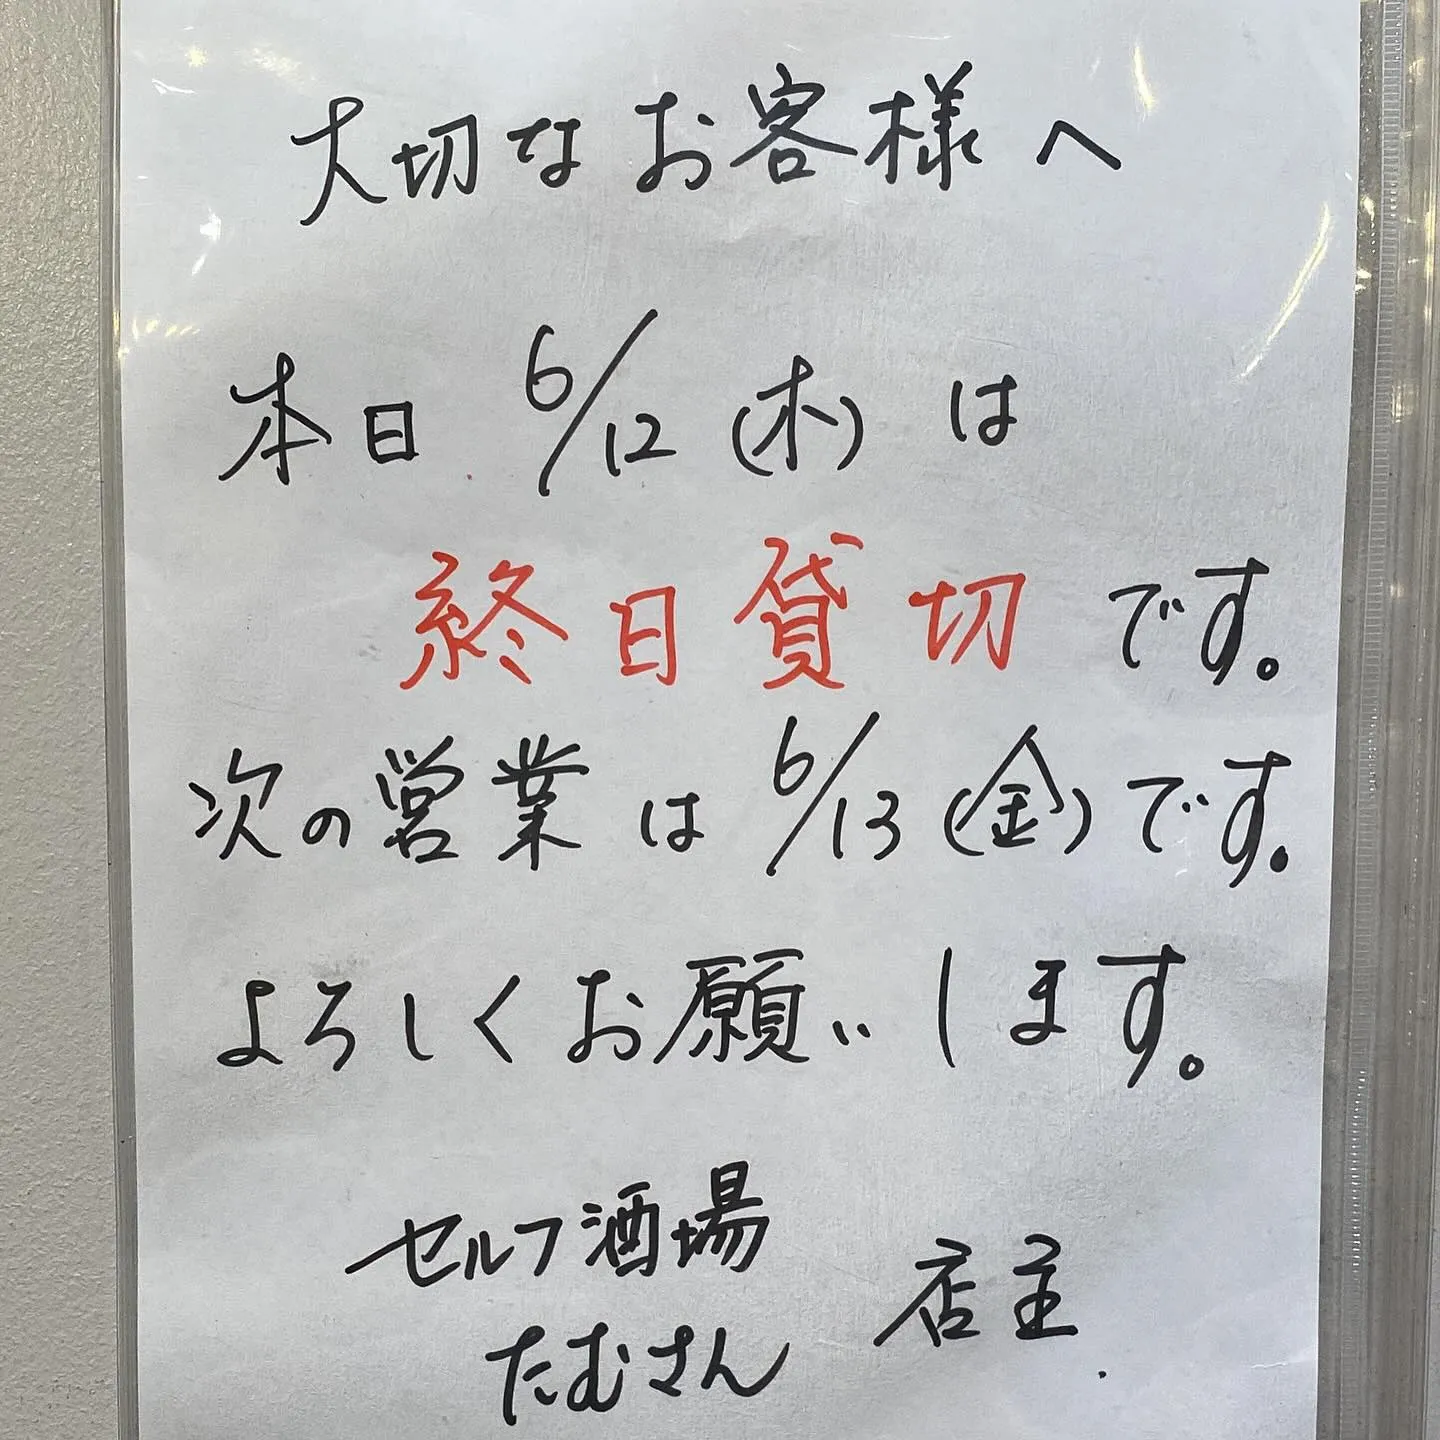 大切なお客様へ
本日 6/12 (木) は
終日貸切です。
次の営業は 6/13 (金) です。
よろしくお願いします。
セルフ酒場
たむさん 店主